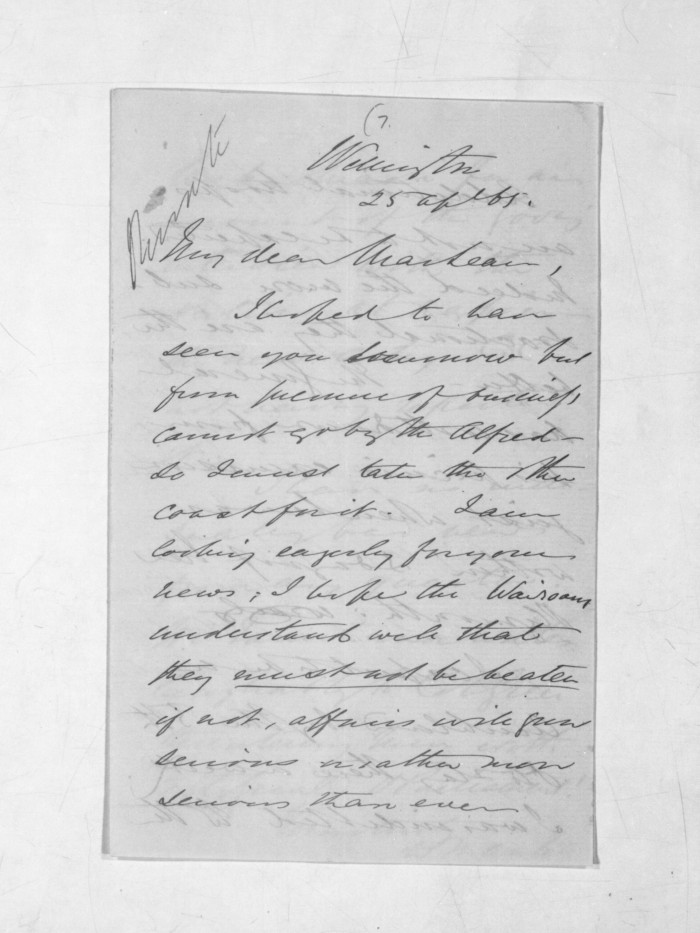 (7.
Wellington
25 Apl 65.
Private
My dear MacLean,
I hoped to have
seen you tomorrow but
from pressure of business
cannot go by the Alfred –
so I must take the other
coast for it. I am
looking eagerly for your
news; I hope the Wairoas
understand well that
they must not be beaten
if not, affairs will grow
serious or rather more
serious than ever